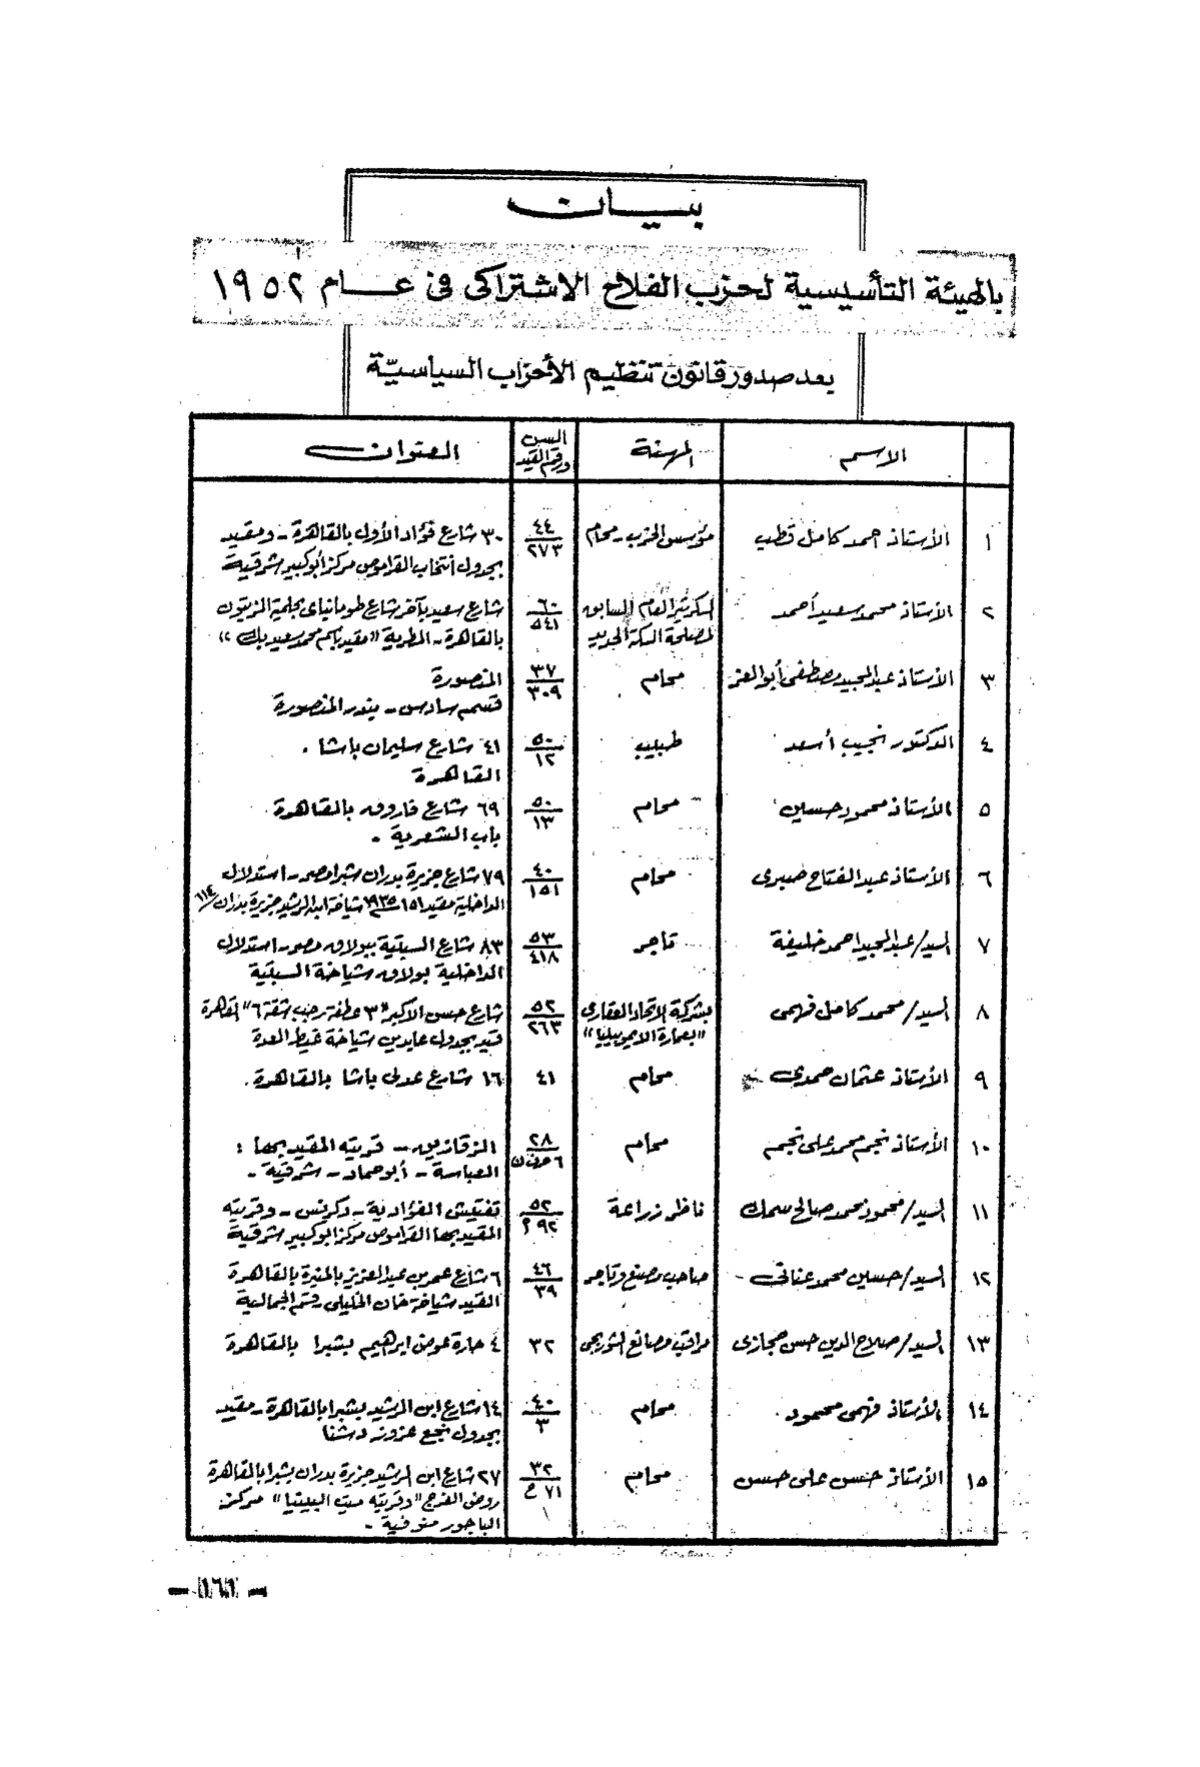 بيان
بالهيئة التأسيسية لحزب الفلاح الاشتراكى فى عام ١٩٥٢
بعد صدور قانون تنظيم الأحزاب السياسيّة
الاسم المهنة السن ورقم القيد العنوان
١ الأستاذ احمد كامل قطب مؤسس الحزب - محام ٤٤/٢٧٣ ٣٠ شارع فؤاد الأول بالقاهرة - ومقيد
بجدول انتخاب القراموص مركز أبو كبير شرقية
٢ الأستاذ محمد سعيد أحمد السكرتير العام السابق ٦٠/٥٤١ شارع سعيد بآخر شارع طومانباى بحلمية الزيتون
لمصلحة السكة الحديد بالقاهرة - المطرية "مقيد باسم محمد سعيد بك"
٣ الأستاذ عبد المجيد مصطفى أبو العز محام ٣٧/٣٠٩ المنصورة
قسم سادس - بندر المنصورة
٤ الدكتور نجيب أسعد طبيب ٥٠/١٢ ٤١ شارع سليمان باشا .
القاهرة
٥ الأستاذ محمود حسين محام ٥٠/١٣ ٦٩ شارع فاروق بالقاهرة
باب الشعرية -
٦ الأستاذ عبد الفتاح صبرى محام ٤٠/١٥١ ٧٩ شارع جزيرة بدران شبرا مصر - استدلال
الداخلية مقيد ١٥١ شياخة ابن الرشيد جزيرة بدران
٧ السيد/ عبد المجيد احمد خليفة تاجر ٥٣/٤١٨ ٨٣ شارع السبتية ببولاق مصر - استدلال
الداخلية بولاق شياخة السبتية
٨ السيد/ محمد كامل فهمى بشركة الاتحاد العقارى ٥٢/٢٦٣ شارع حسن الأكبر "٣ عطفة رجب شقة ٦" القاهرة
"بعمارة الايموبيليا" قيد بجدول عابدين شياخة غيط العدة
٩ الأستاذ عثمان حمدى محام ٤١ ١٦ شارع عدلى باشا بالقاهرة .
١٠ الأستاذ نجيم محمد على نجيم محام ٢٨/٦ الزقازيق - قريته المقيد بها :
العباسة - أبو حماد - شرقية -
١١ السيد/ محمود محمد صالح سمك ناظر زراعة ٥٢/٩٢ م تفتيش الفؤادية - دكرنس - وقريته
المقيد بها القراموص مركز أبو كبير شرقية
١٢ السيد/ حسين محمد عنانى - صاحب مصنع وتاجر ٤٦/٣٩ ٦ شارع عمر بن عبد العزيز بالمنيرة بالقاهرة
القيد شياخة خان الخليلى قسم الجمالية
١٣ السيد/ صلاح الدين حسن حجازى مراقب مصانع الشوربجى ٣٢ ٤ حارة عوض ابراهيم بشبرا بالقاهرة
١٤ الأستاذ فهمى محمود محام ٤٠/٣ ١٤ شارع ابن الرشيد بشبرا بالقاهرة - مقيد
بجدول نجع عزوز دشنا
١٥ الأستاذ حسن على حسن محام ٣٢/٧١ ع ٢٧ شارع ابن الرشيد جزيرة بدران بشبرا بالقاهرة
روض الفرج "وقريته ميت البيضا" مركز
الباجور منوفية -
- ١٦٦ -